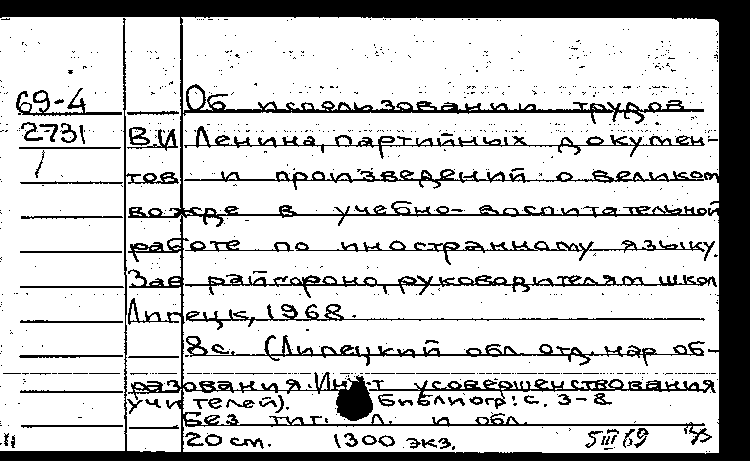 69-4 Об использовании трудов
2731 В.И Ленина, партийных докумен-
тов и произведений о великом
вожде в учебно-воспитательной
работе по иностранному языку.
Зав райгороно, руководителям школ
Липецк, 1968.
8с. (Липецкий обл. отд. нар об-
разования. Ин-т усовершенствования
учителей). Библиогр: с. 3-8
Без тит. л. и обл.
20 см. 1300 экз. 5 III 69